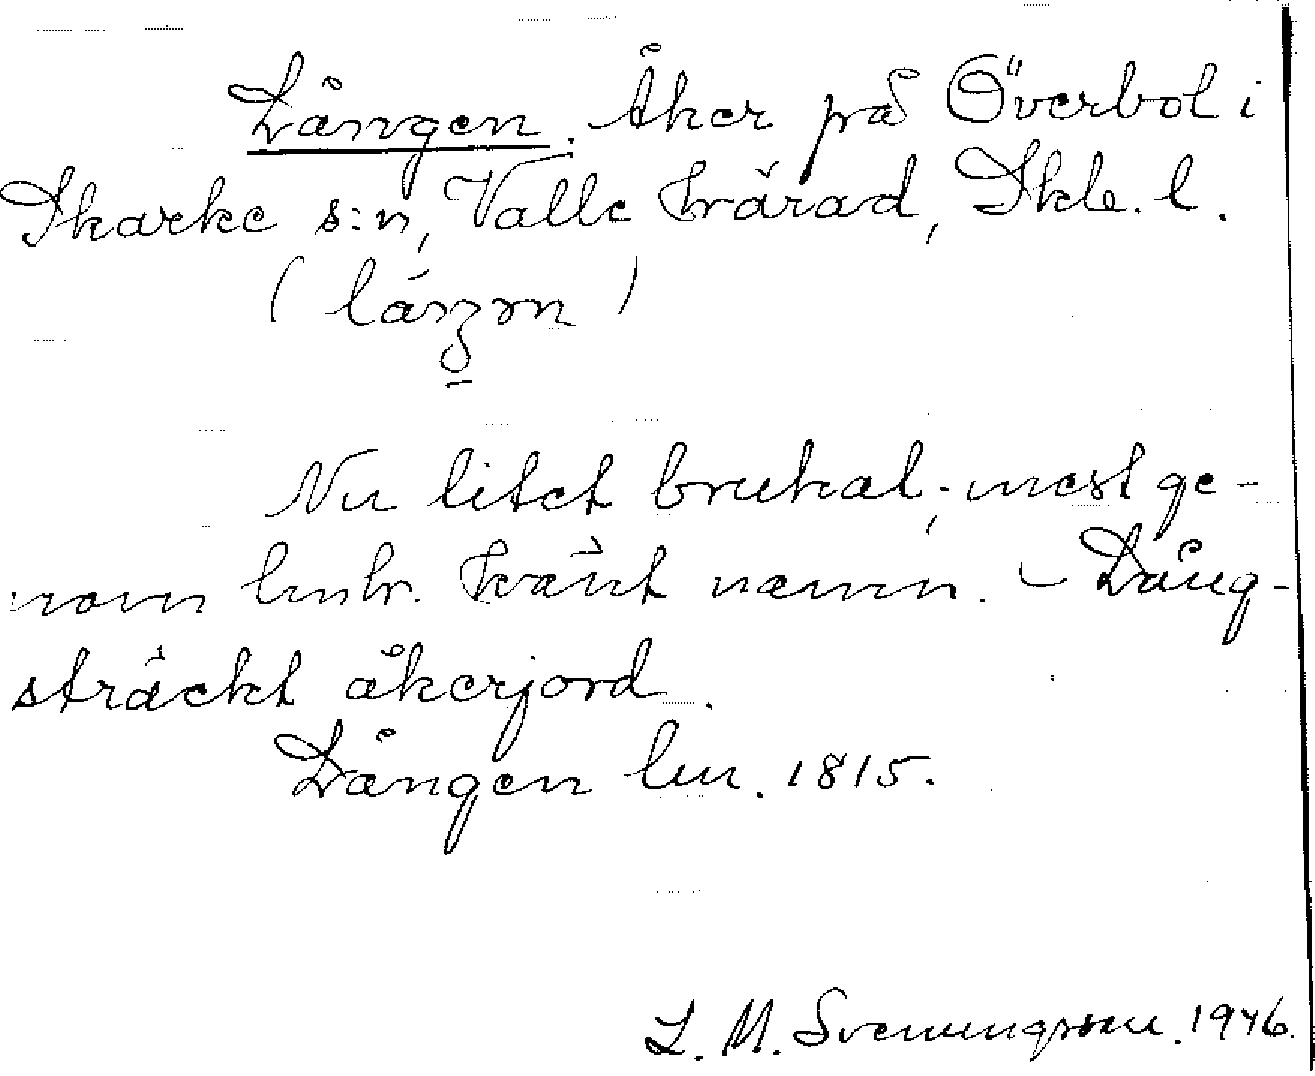 Lången. Åker på Överbol i
Skarke s:n, Valle härad, Skb. l.
Nu litet brukat, mest ge-
nom lmhr. känt namn. – Lång-
sträckt åkerjord.
Lången lm. 1815.
L. M. Svenungsson. 1946.